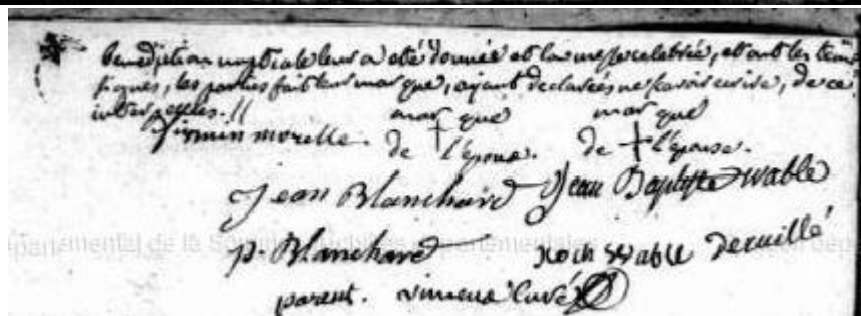 benediction nuptiale leur a été donnée et la messe celebrée, et ont les tem
signés, les parties fait leur marque, ayant declarées ne scavoir ecrire, de ce
interpellés.//
firmin morelle. marque de l'époux. marque de l'épouse.
Jean Blanchard Jean Baptiste wable
p. Blanchard Roch wable deruillé
parent. curé